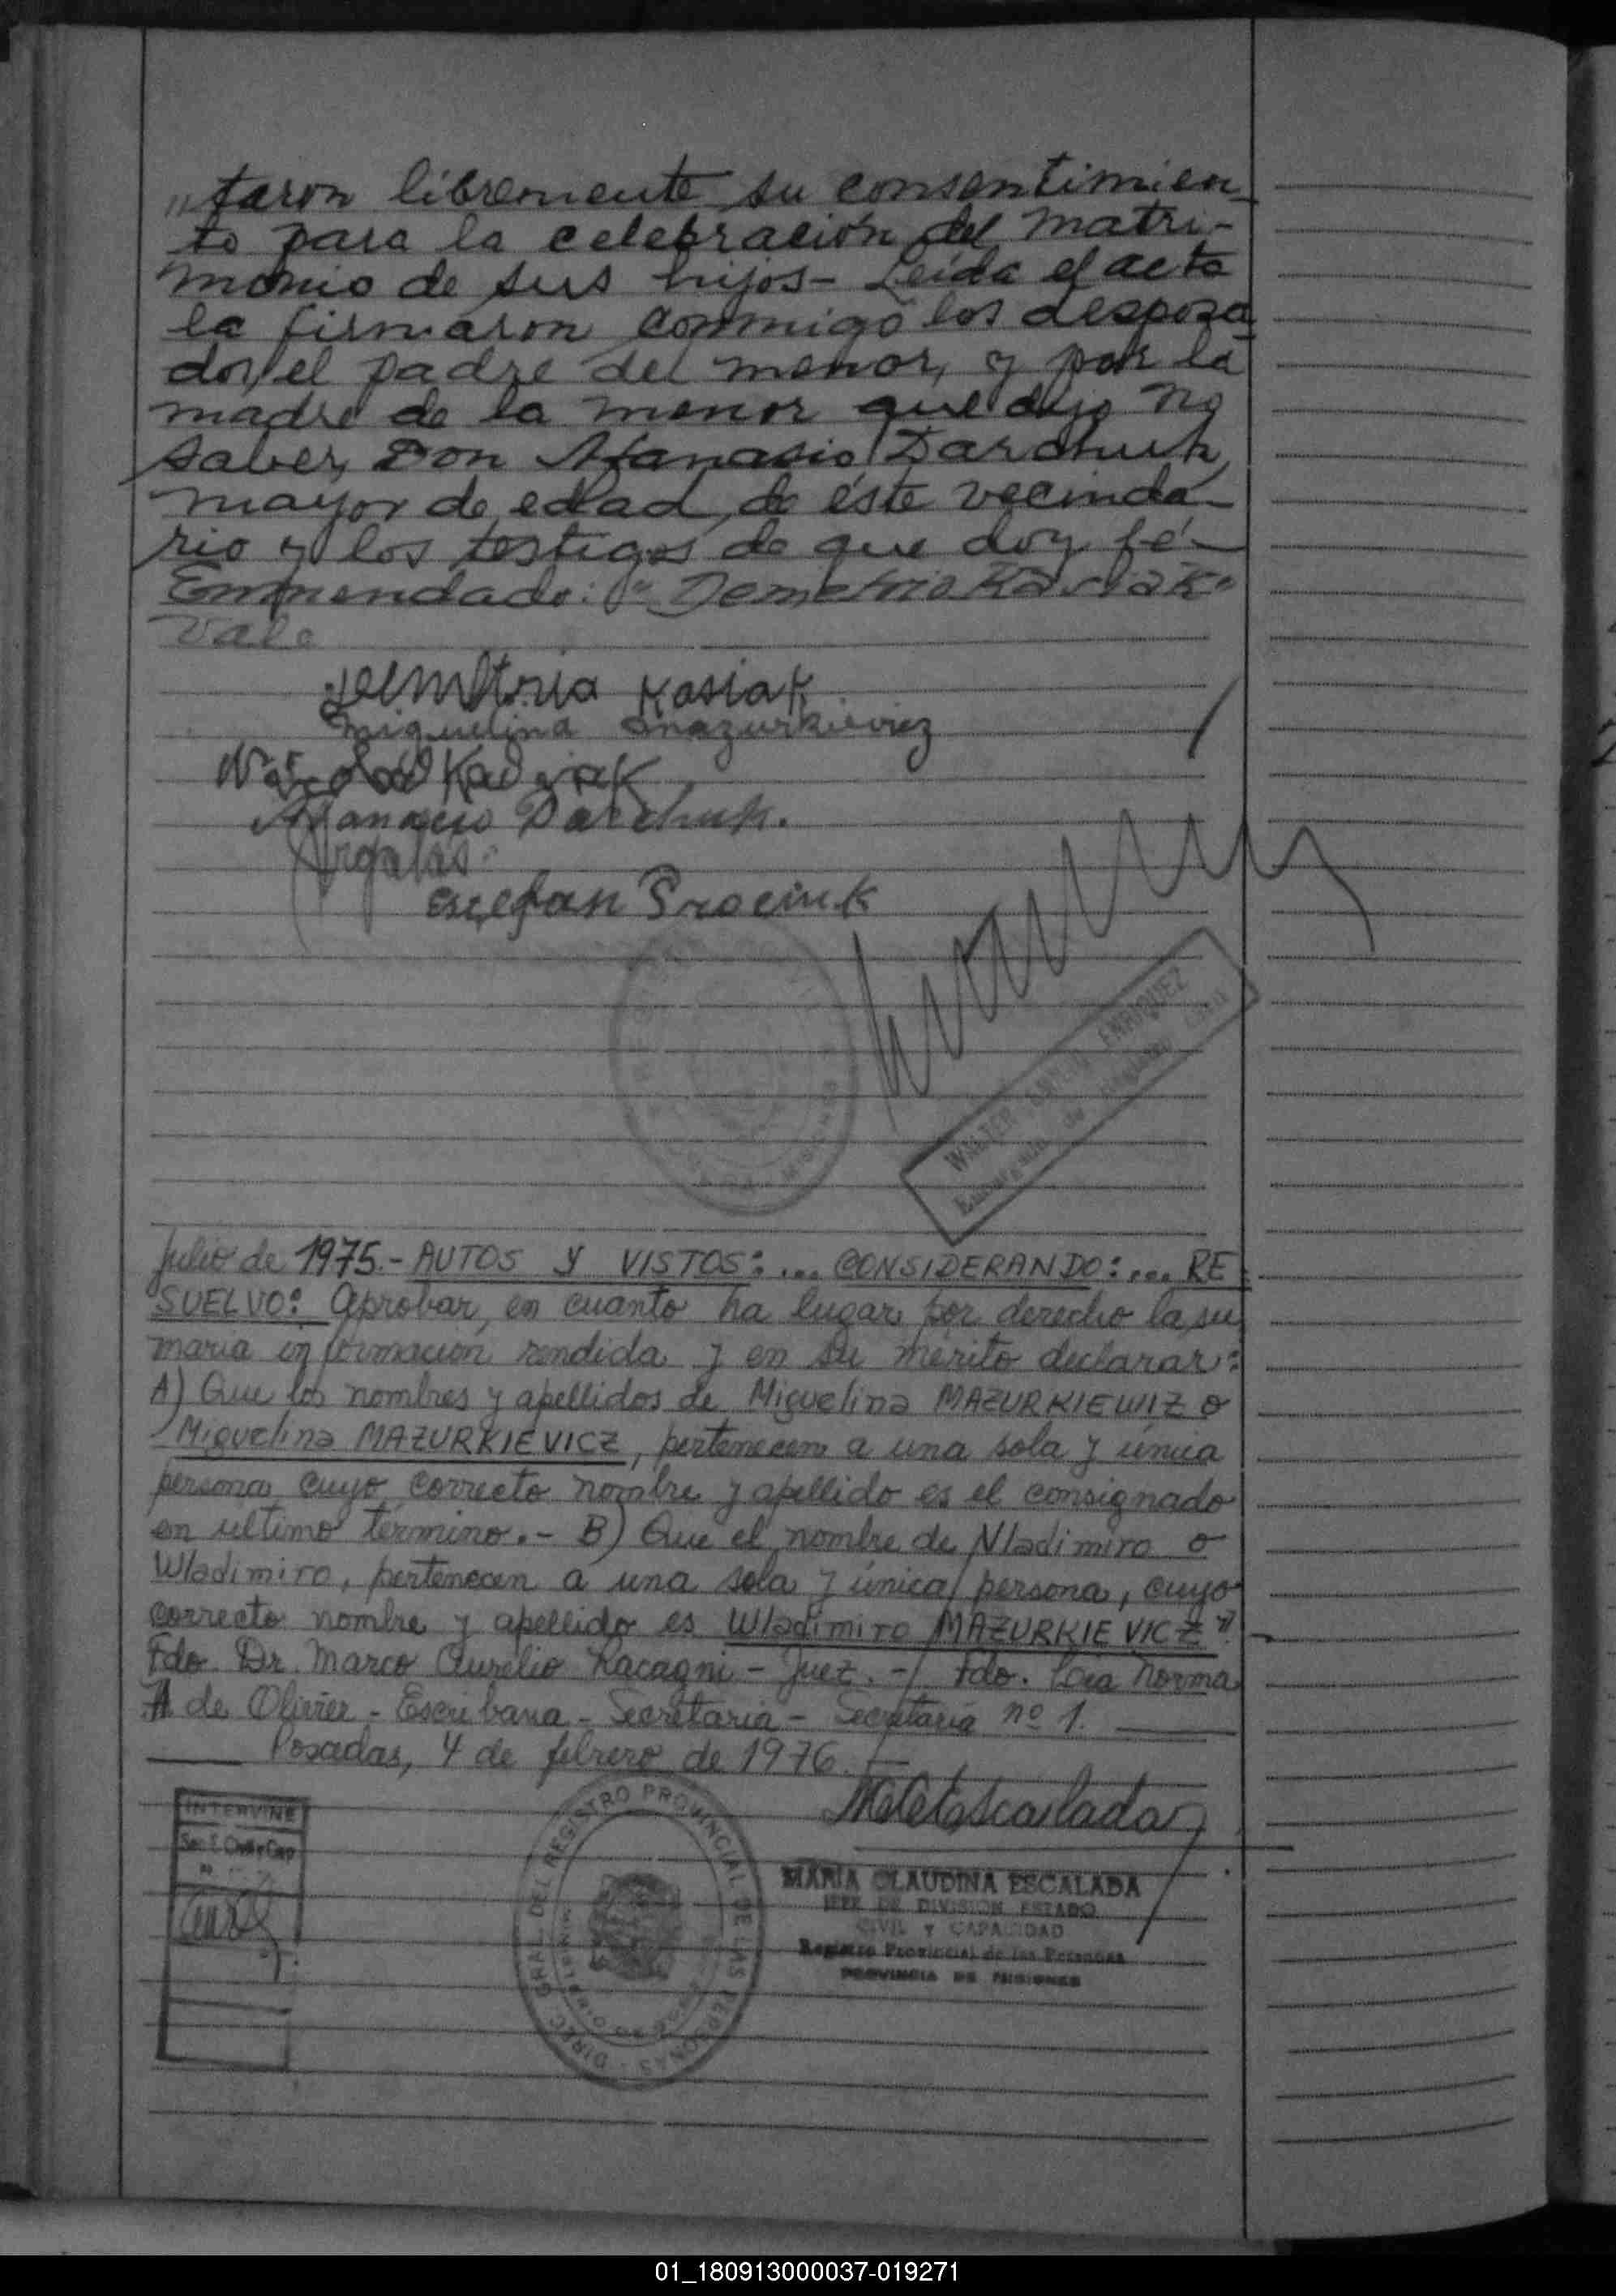 "taron libremente su consentimien
to para la celebración del matri-
monio de sus hijos- Leída el acta
la firmaron conmigo los desposa
dos, el padre del menor, y por la
madre de la menor que dijo no
saber, Don Afanasio Darchuk,
mayor de edad, de éste vecinda-
rio y los testigos de que doy fé-
Enmendado: "Demetrio Kasiak"
Vale
Demetrio Kasiak
Miguelina Mazurkievicz
Afanasio Darchuk.
WALTER ENRIQUEZ
Julio de 1975.- AUTOS Y VISTOS:... CONSIDERANDO:... RE
SUELVO: Aprobar, en cuanto ha lugar por derecho la su
maria información rendida y en su mérito declarar:
A) Que los nombres y apellidos de Miguelina MAZURKIEWIZ o
Miguelina MAZURKIEVICZ, pertenecen a una sola y única
persona cuyo correcto nombre y apellido es el consignado
en ultimo término.- B) Que el nombre de Nladimiro o
Wladimiro, pertenecen a una sola y única persona, cuyo
correcto nombre y apellido es Wladimiro MAZURKIEVICZ".
Fdo. Dr. Marco Aurelio Racagni - Juez. -/ Fdo. Norma
A de Olivier - Escribana - Secretaria - Secretaria nº 1.
Posadas, 4 de febrero de 1976.-
INTERVINE
DIREC. GRAL. DEL REGISTRO PROVINCIAL DE LAS PERSONAS
MARIA CLAUDINA ESCALADA
JEFE DE DIVISION ESTADO
CIVIL Y CAPACIDAD
Registro Provincial de las Personas
PROVINCIA DE MISIONES
01_180913000037-019271